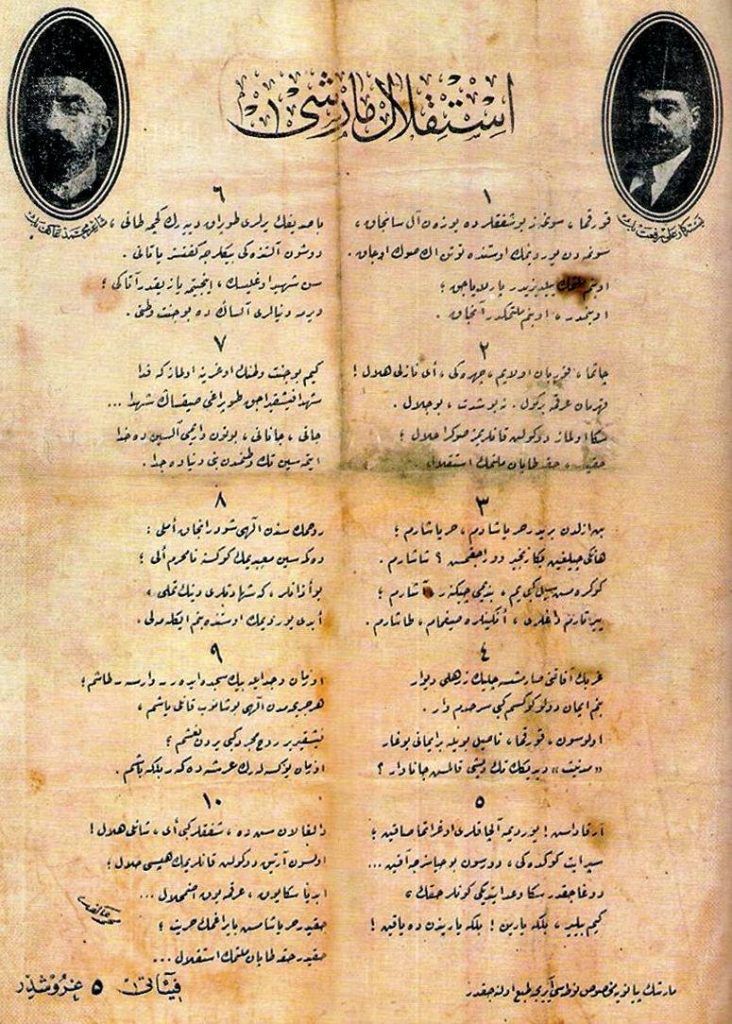 استقلال مارشی
بسته‌كار علی رفعت بك
شاعر محمد عاكف بك
١
قورقما ، سونمز بو شفقلرده یوزن آل سانجاق ،
سونمه‌دن یوردیمك اوستنده توتن اك صوك اوجاق .
او بنم ملتمك ییلدیزیدر پارلایاجق ؛
او بنمدر ، او بنم ملتمكدر آنجاق .
٢
چاتما ، قوربان اولایم ، چهره‌كی ، ای نازلی هلال !
قهرمان عرقمه بر گول . نه بو شدت ، بو جلال .
سكا اولماز دوكولن قانلریمز صوكرا حلال ؛
حقیدر ، حقه طاپان ملتمك استقلال .
٣
بن ازلدن بریدر حر یاشادم ، حر یاشارم ؛
هانكی چیلغین بكا زنجیر ووراجقمش ؟ شاشارم .
كوكره‌مش سیل كبی‌یم ، بندیمی چیكنر ، آشارم ؛
ییرتارم طاغلری ، انكینلره صیغمام ، طاشارم .
٤
غربك آفاقنی صارمشسه چلیك زرهلی دیوار
بنم ایمان دولو كوكسم كبی سرحدم وار .
اولوسون ، قورقما ، ناصیل بویله بر ایمانی بوغار
« مدنیت » دیدیكك تك دیشی قالمش جاناوار ؟
٥
آرقاداش ! یوردیمه آلچاقلری اوغراتما صاقین ؛
سپر ایت كوكده‌كی ، دورسون بو حیاسزجه آقین ...
دوغاجقدر سكا وعد ایتدیكی كونلر حقك ،
كیم بیلیر ، بلكه یارین ! بلكه یاریندن ده یاقین !
٦
باصدیغك یرلری طوپراق دییه‌رك كچمه طانی ،
دوشون آلتنده‌كی بیكلرجه كفنسز یاتانی .
سن شهید اوغلیسك ، اینجیتمه یازیقدر آتاكی ؛
ویرمه دنیالری آلساك ده بو جنت وطنی .
٧
كیم بو جنت وطنك اوغرینه اولماز كه فدا
شهدا فیشقیراجق طوپراغی صیقساك شهدا ...
جانی ، جانانی ، بوتون واریمی آلسین ده خدا
ایتمه‌سین تك وطنمدن بنی دنیاده جدا .
٨
روحمك سندن الٰهی شودر آنجاق املی :
دكمه‌سین معبدیمك كوكسنه نامحرم الی ؛
بو اذانلر ، كه شهادتلری دینك تملی ،
ابدی یوردیمك اوستنده بنم ایكله‌ملی .
٩
او زمان وجد ایله بیك سجده ایدر ـ وارسه ـ طاشم ؛
هر جریحه‌مدن الٰهی بوشانوب قانلی یاشم ،
فیشقیریر روح مجرد كبی یردن نعشم ؛
او زمان یوكسله‌رك عرشه دكر بلكه باشم .
١٠
دالغالان سن ده ، شفقلر كبی ای شانلی هلال !
اولسون آرتیق دوكولن قانلریمك هپسی حلال ؛
ابدیا سكا یوق ، عرقمه یوق اضمحلال ...
حقیدر حر یاشامش بایراغمك حریت ؛
حقیدر حقه طاپان ملتمك استقلال ...
مارشك پیانویه مخصوص نوطه‌سی آیریجه طبع اولنه‌جقدر
فیئاتی ٥ غروشدر